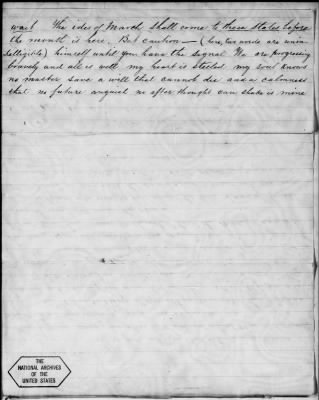 wait The ides of March shall come to these States before
the month is here. But caution — (here, two words are unin-
telligible) himself until you have the signal We are progressing
bravely and all is well my heart is steeled my soul knows
no master save a will that cannot die and a calmness
that no future anguish no after thought can shake is mine
THE
NATIONAL ARCHIVES
OF THE
UNITED STATES